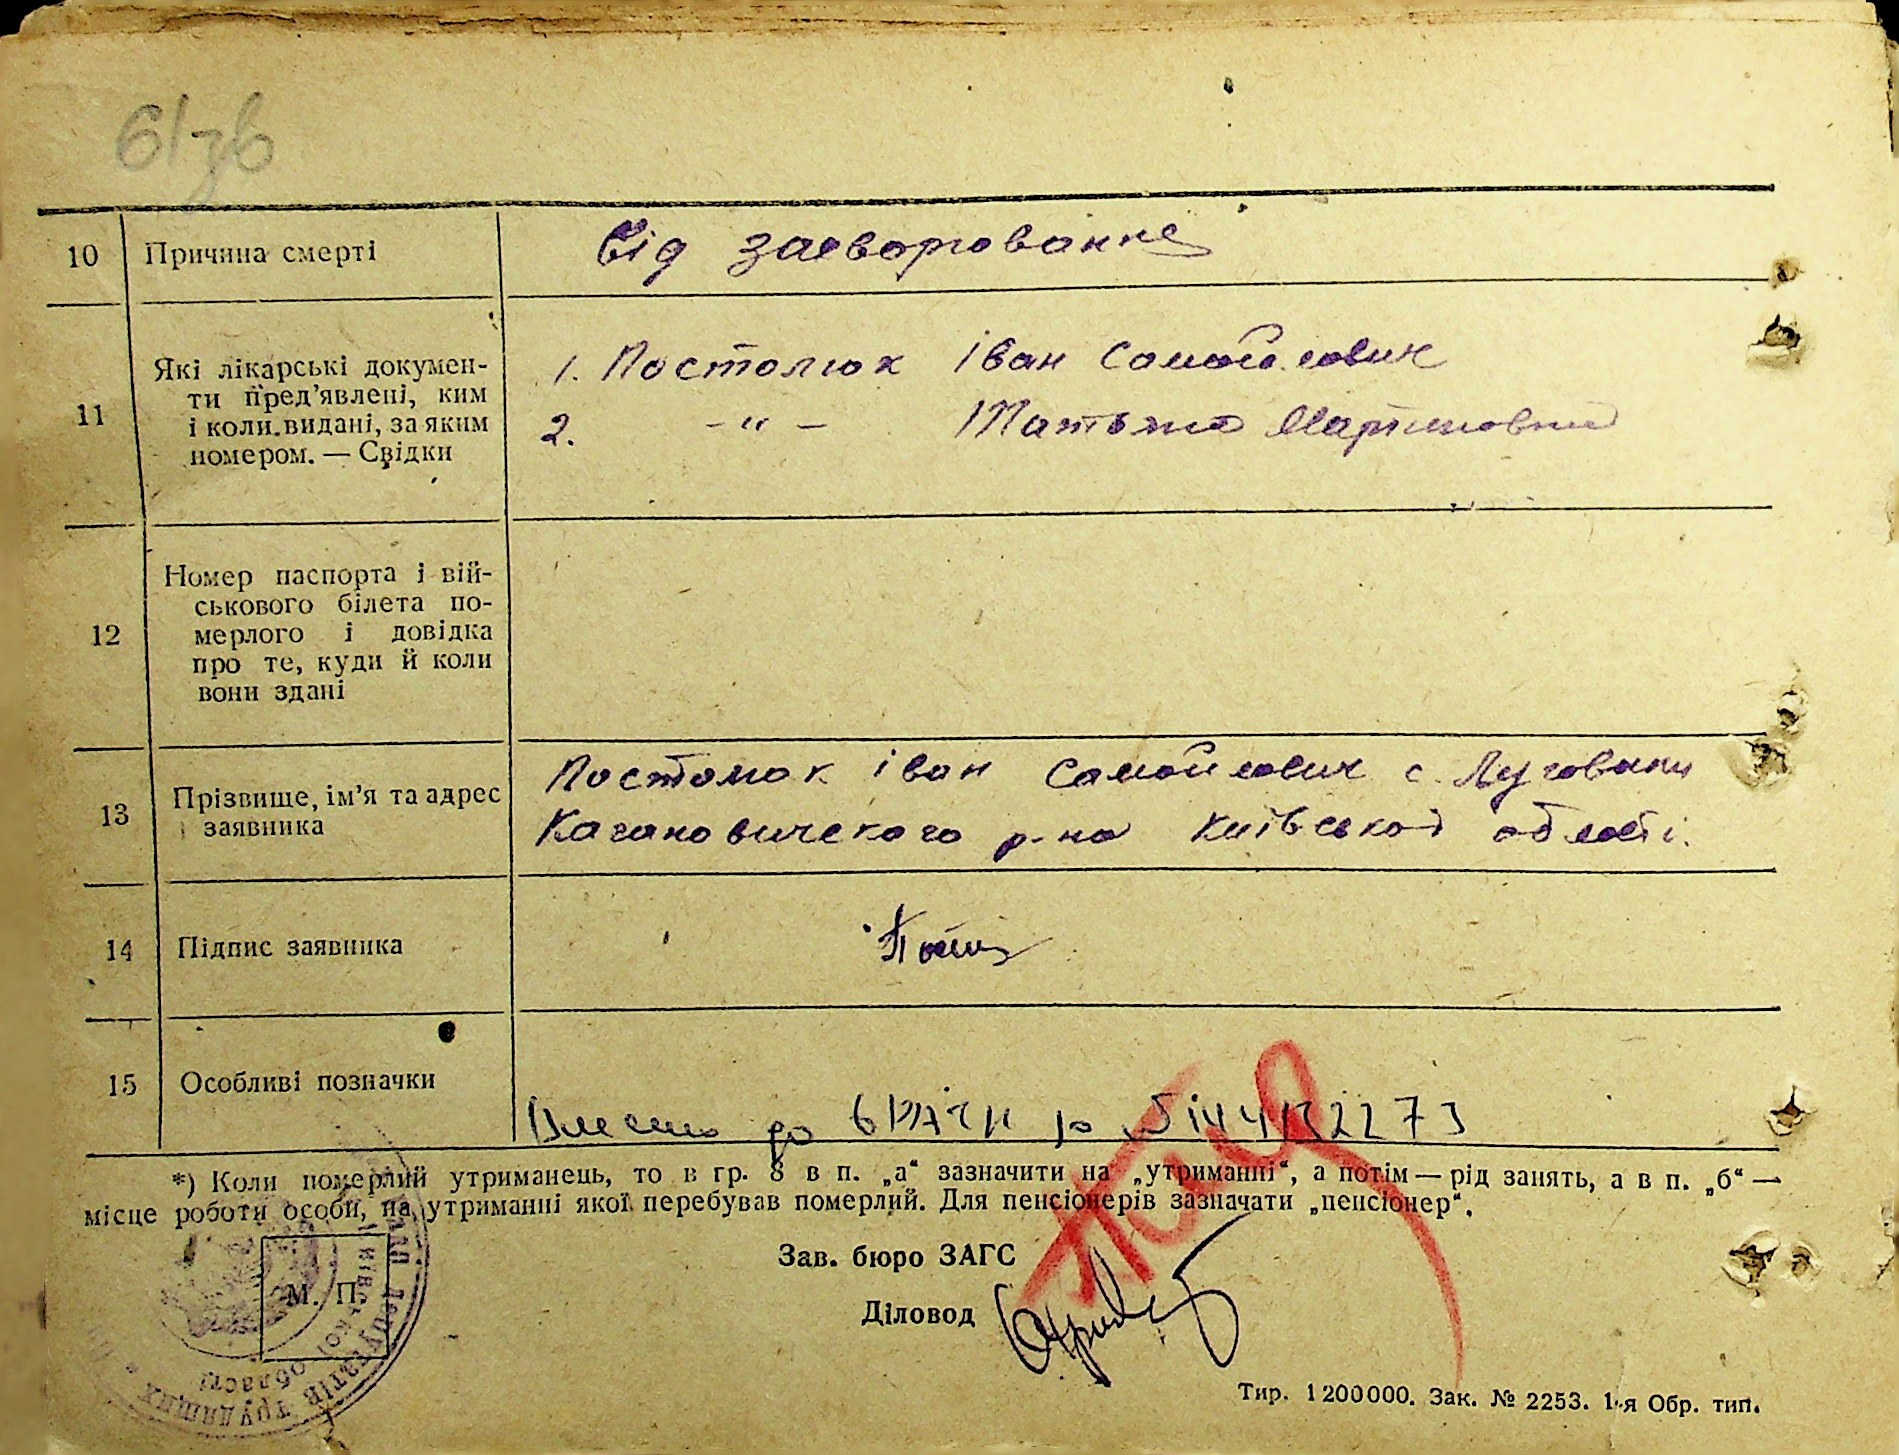 10 Причина смерті Від захворювання
11 Які лікарські докумен-
ти пред'явлені, ким
і коли видані, за яким
номером. — Свідки
1. Постолюк Іван Самойлович
2. –"– Татьяна Мартиновна
12 Номер паспорта і вій-
ськового білета по-
мерлого і довідка
про те, куди й коли
вони здані
13 Прізвище, ім'я та адрес
заявника
Постолюк Іван Самойлович с. Луговики
Кагановичского р-на Київської області.
14 Підпис заявника
15 Особливі позначки
Внесено до
*) Коли померлий утриманець, то в гр. 8 в п. „а“ зазначити на „утриманні“, а потім — рід занять, а в п. „б“ —
місце роботи особи, на утриманні якої перебував померлий. Для пенсіонерів зазначати „пенсіонер“.
Зав. бюро ЗАГС
М. П.
Діловод
депутатів трудящих
області
Тир. 1200000. Зак. № 2253. 1-я Обр. тип.